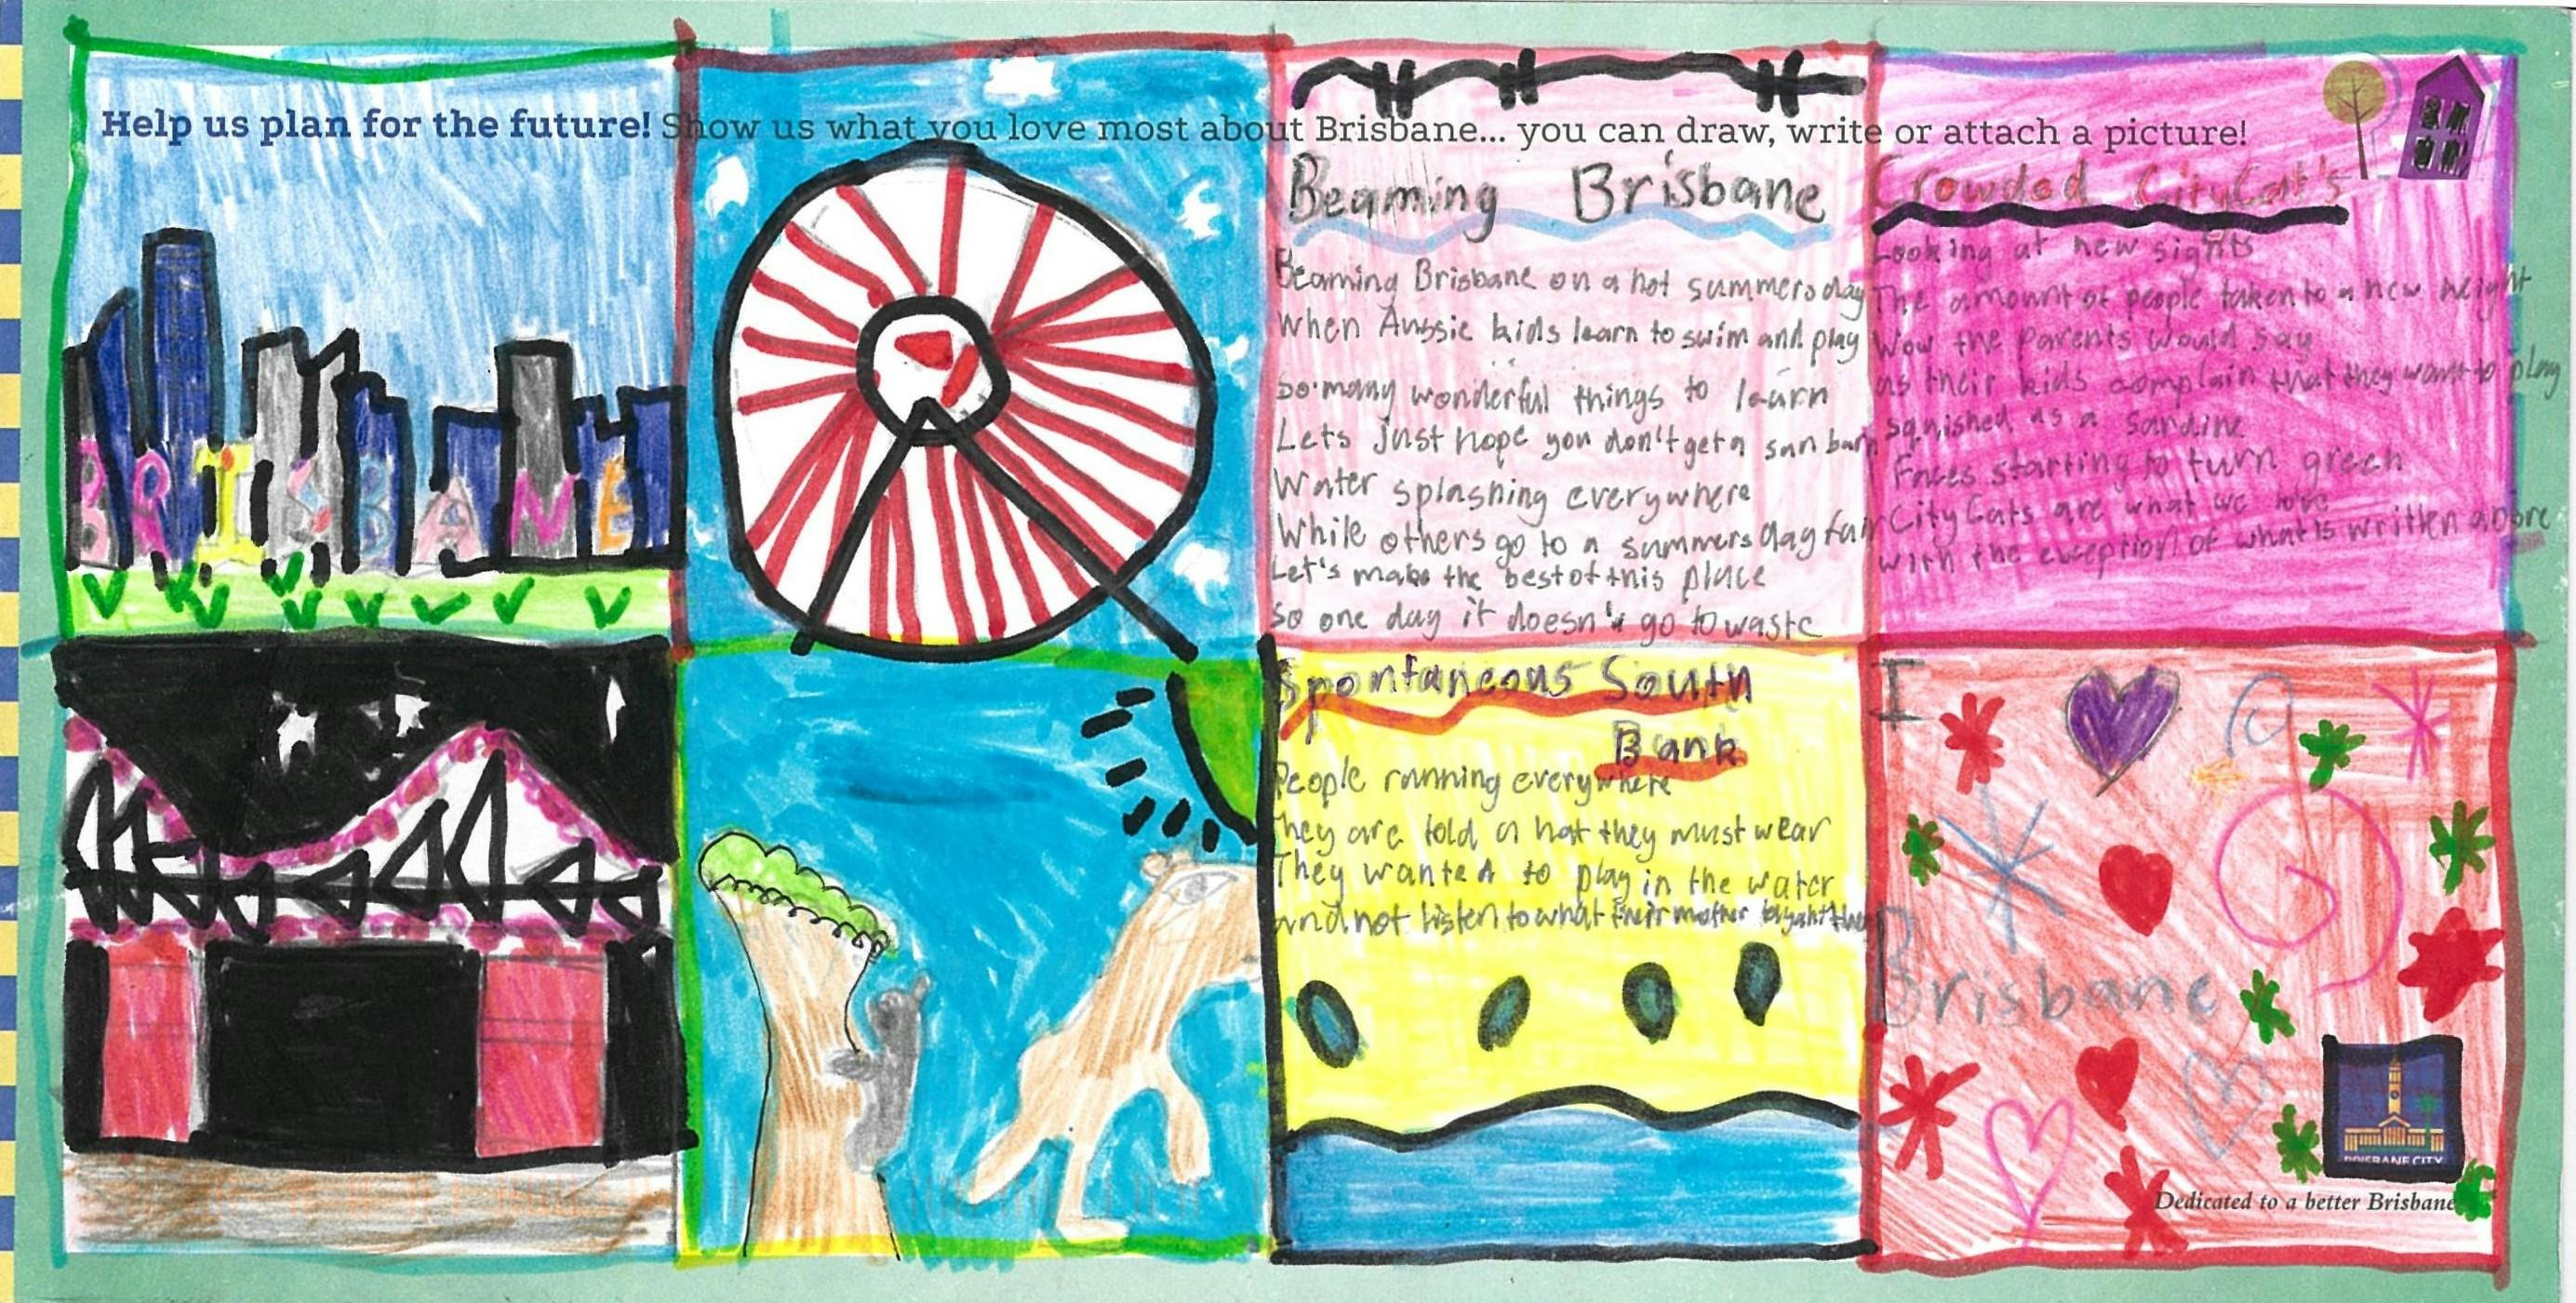 Help us plan for the future! Show us what you love most about Brisbane... you can draw, write or attach a picture!
BRISBANE
Beaming Brisbane
Beaming Brisbane on a hot summers day
When Aussie kids learn to swim and play
so many wonderful things to learn
Lets just hope you don't get a sun burn
Water splashing everywhere
While others go to a summers day fair
Let's make the best of this place
so one day it doesn't go to waste
Crowded CityCat's
Looking at new sights
The amount of people taken to a new height
Wow the parents would say
as their kids complain that they want to play
squished as a sardine
Faces starting to turn green
City Cats are what we love
with the exception of what is written above
Spontaneous South
Bank
People running everywhere
They are told a hat they must wear
They wanted to play in the water
and not listen to what their mother
I
Brisbane
BRISBANE CITY
Dedicated to a better Brisbane